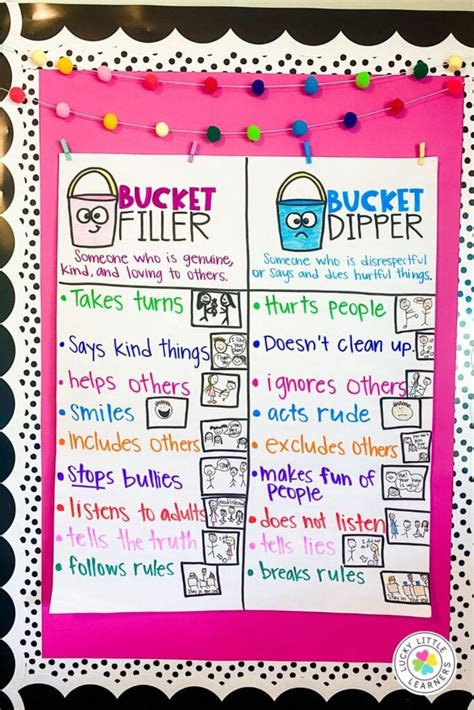 BUCKET
FILLER
Someone who is genuine,
kind, and loving to others.
• Takes turns
• Says kind things
• helps others
• Smiles
• Includes others
• Stops bullies
• listens to adults
• tells the truth
• follows rules
BUCKET
DIPPER
Someone who is disrespectful
or says and does hurtful things.
• Hurts people
• Doesn't clean up.
• ignores others
• acts rude
• excludes others
• makes fun of
people
• does not listen
• tells lies
• breaks rules
LUCKY LITTLE
LEARNERS